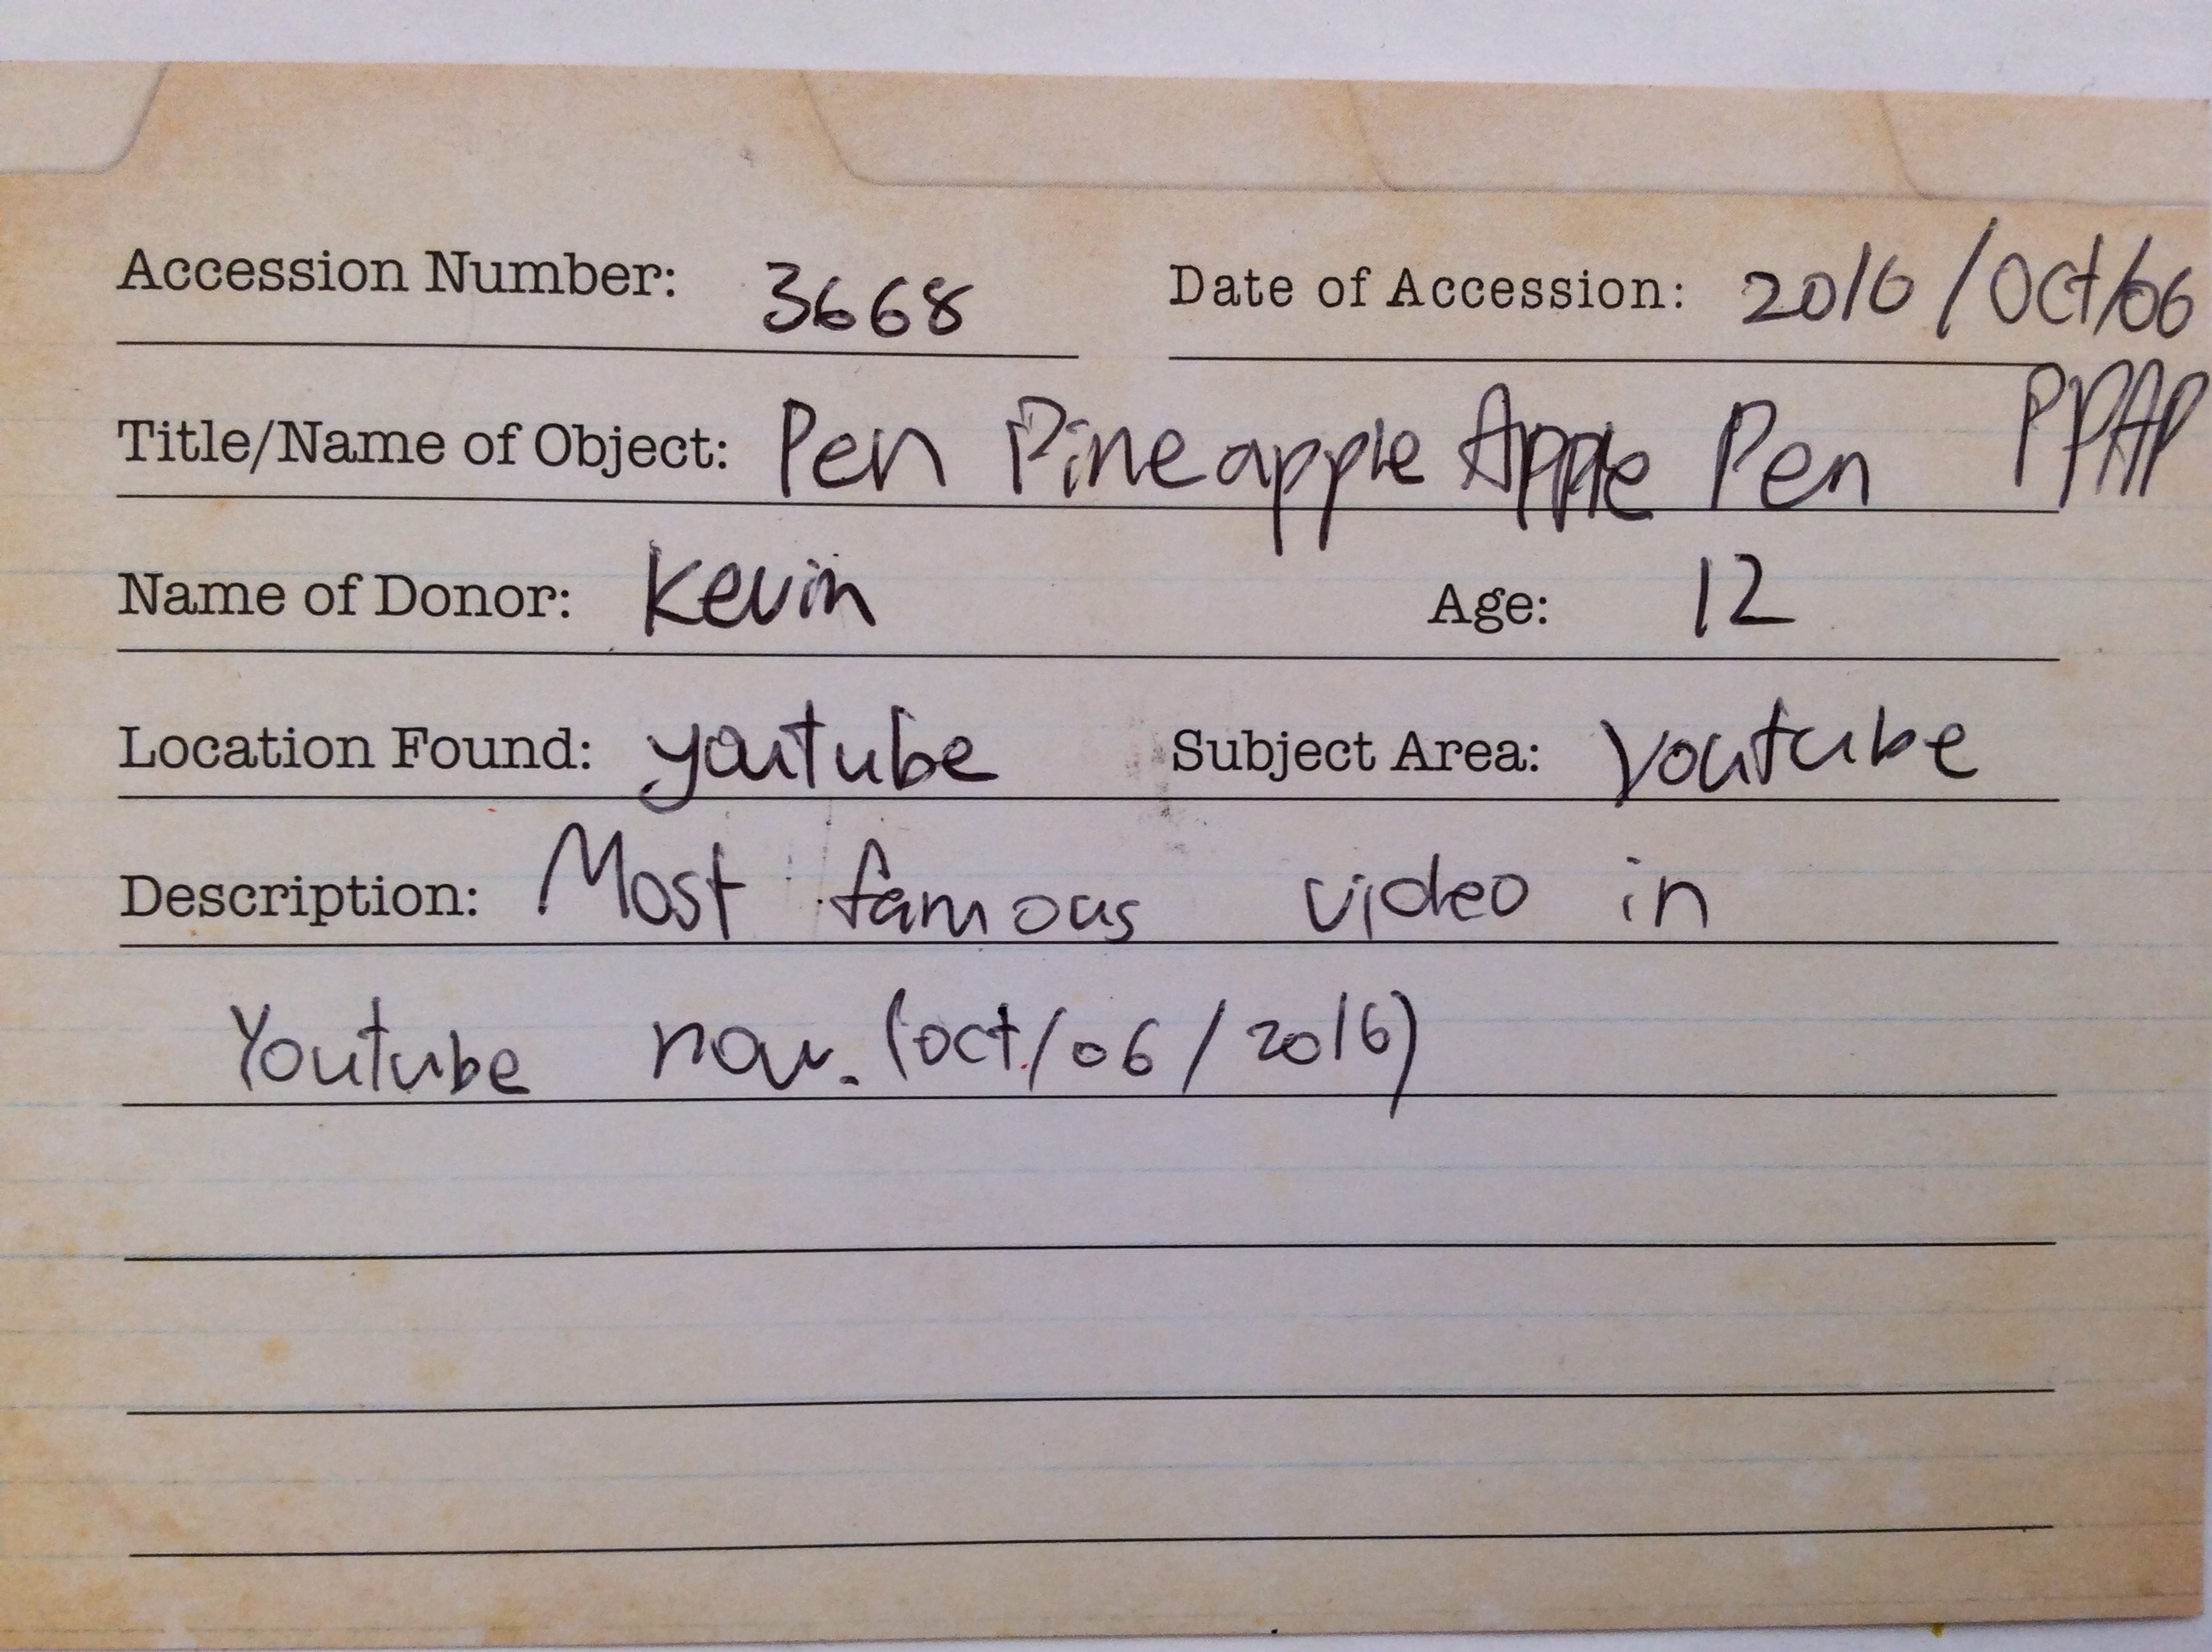 Accession Number: 3668 Date of Accession: 2016/Oct/06
Title/Name of Object: Pen Pineapple Apple Pen PPAP
Name of Donor: Kevin Age: 12
Location Found: youtube Subject Area: Youtube
Description: Most famous video in
Youtube now. (oct/06/2016)